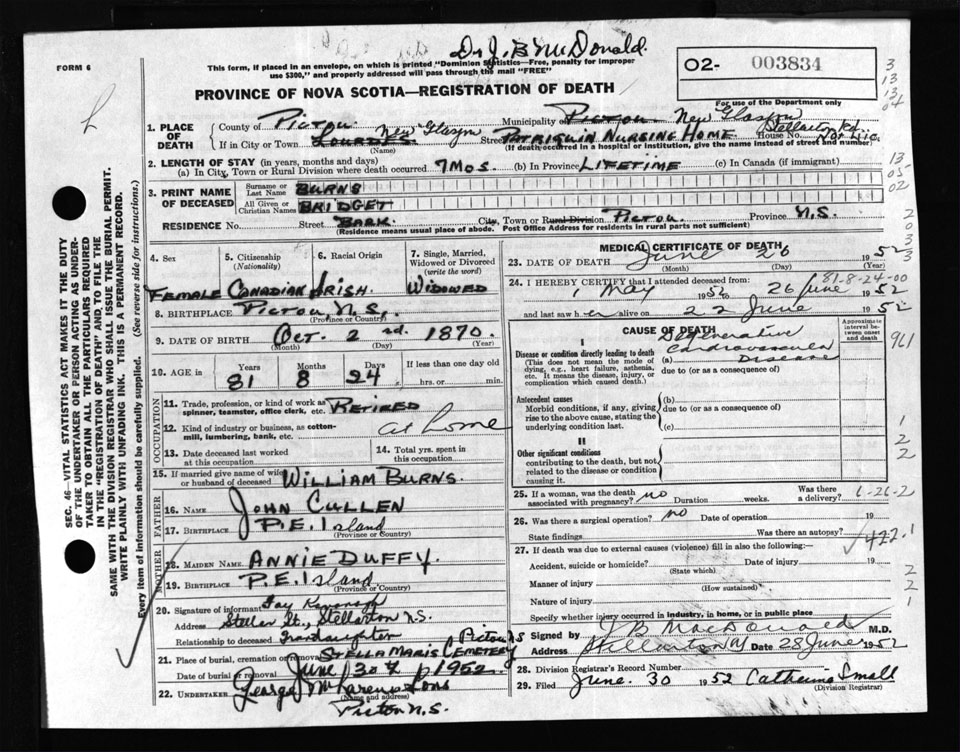 Dr J. B McDonald.
FORM 6
This form, if placed in an envelope, on which is printed "Dominion Statistics—Free, penalty for improper
use $300," and properly addressed will pass through the mail "FREE"
O2- 003834
PROVINCE OF NOVA SCOTIA—REGISTRATION OF DEATH
For use of the Department only
1. PLACE OF DEATH
County of Pictou Municipality Pictou New Glasgow
If in City or Town Lourdes New Glasgow Street Patriquin Nursing Home House No. Stellarton Rd.
(Name) (If death occurred in a hospital or institution, give the name instead of street and number)
2. LENGTH OF STAY (in years, months and days)
(a) In City, Town or Rural Division where death occurred 7 Mos. (b) In Province LIFETIME (c) In Canada (if immigrant)
3. PRINT NAME OF DECEASED
Surname or Last Name BURNS
All Given or Christian Names BRIDGET
RESIDENCE No. Street BANK. City, Town or Rural Division Pictou. Province N.S.
(Residence means usual place of abode. Post Office Address for residents in rural parts not sufficient)
4. Sex 5. Citizenship (Nationality) 6. Racial Origin 7. Single, Married, Widowed or Divorced (write the word)
Female Canadian Irish. Widowed
8. BIRTHPLACE Pictou, N.S.
(Province or Country)
9. DATE OF BIRTH Oct. 2nd. 1870.
(Month) (Day) (Year)
10. AGE IN Years Months Days If less than one day
81 8 24 hrs. or min.
11. Trade, profession, or kind of work as spinner, teamster, office clerk, etc. Retired
12. Kind of industry or business, as cotton-mill, lumbering, bank, etc. at home
13. Date deceased last worked at this occupation 14. Total yrs. spent in this occupation.
15. If married give name of wife or husband of deceased William Burns.
FATHER
16. Name John Cullen
17. Birthplace P.E. Island
(Province or Country)
MOTHER
18. Maiden Name Annie Duffy.
19. Birthplace P.E. Island
(Province or Country)
20. Signature of informant Fay Kavanagh
Address Stellar St., Stellarton N.S.
Relationship to deceased Grandaughter
21. Place of burial, cremation or removal Stella Maris Cemetery Pictou NS
Date of burial or removal June 30th 1952.
22. UNDERTAKER George McLaren & Sons
(Name and address)
Pictou N.S.
MEDICAL CERTIFICATE OF DEATH
23. DATE OF DEATH June 26 1952
(Month) (Day) (Year)
81-8-24-00
24. I HEREBY CERTIFY that I attended deceased from:
1 May 1952 to 26 June 1952
and last saw her alive on 22 June 1952
CAUSE OF DEATH
Approximate interval between onset and death
I
Disease or condition directly leading to death
(This does not mean the mode of dying, e.g., heart failure, asthenia, etc. It means the disease, injury, or complication which caused death.)
(a) Degenerative Cardiovascular Disease
due to (or as a consequence of)
Antecedent causes
Morbid conditions, if any, giving rise to the above cause, stating the underlying condition last.
(b)
due to (or as a consequence of)
(c)
II
Other significant conditions
contributing to the death, but not related to the disease or condition causing it.
25. If a woman, was the death associated with pregnancy? no Duration weeks. Was there a delivery?
6-26-2
26. Was there a surgical operation? no Date of operation 19
State findings Was there an autopsy?
422.1
27. If death was due to external causes (violence) fill in also the following:—
Accident, suicide or homicide? Date of injury 19
(State which)
Manner of injury
(How sustained)
Nature of injury
Specify whether injury occurred in industry, in home, or in public place
Signed by J B MacDonald M.D.
Address Stellarton NS Date 28 June 1952
28. Division Registrar's Record Number
29. Filed June. 30 1952 Catherine Small
(Division Registrar)
SEC. 46—VITAL STATISTICS ACT MAKES IT THE DUTY
OF THE UNDERTAKER OR PERSON ACTING AS UNDER-
TAKER TO OBTAIN ALL THE PARTICULARS REQUIRED
IN THE "REGISTRATION OF DEATH" AND TO FILE THE
SAME WITH THE DIVISION REGISTRAR WHO SHALL ISSUE THE BURIAL PERMIT.
WRITE PLAINLY WITH UNFADING INK. THIS IS A PERMANENT RECORD.
Every item of information should be carefully supplied. (See reverse side for instructions.)
3
13
13
04
13
05
02
2
0
3
3
961
1
2
2
2
2
1